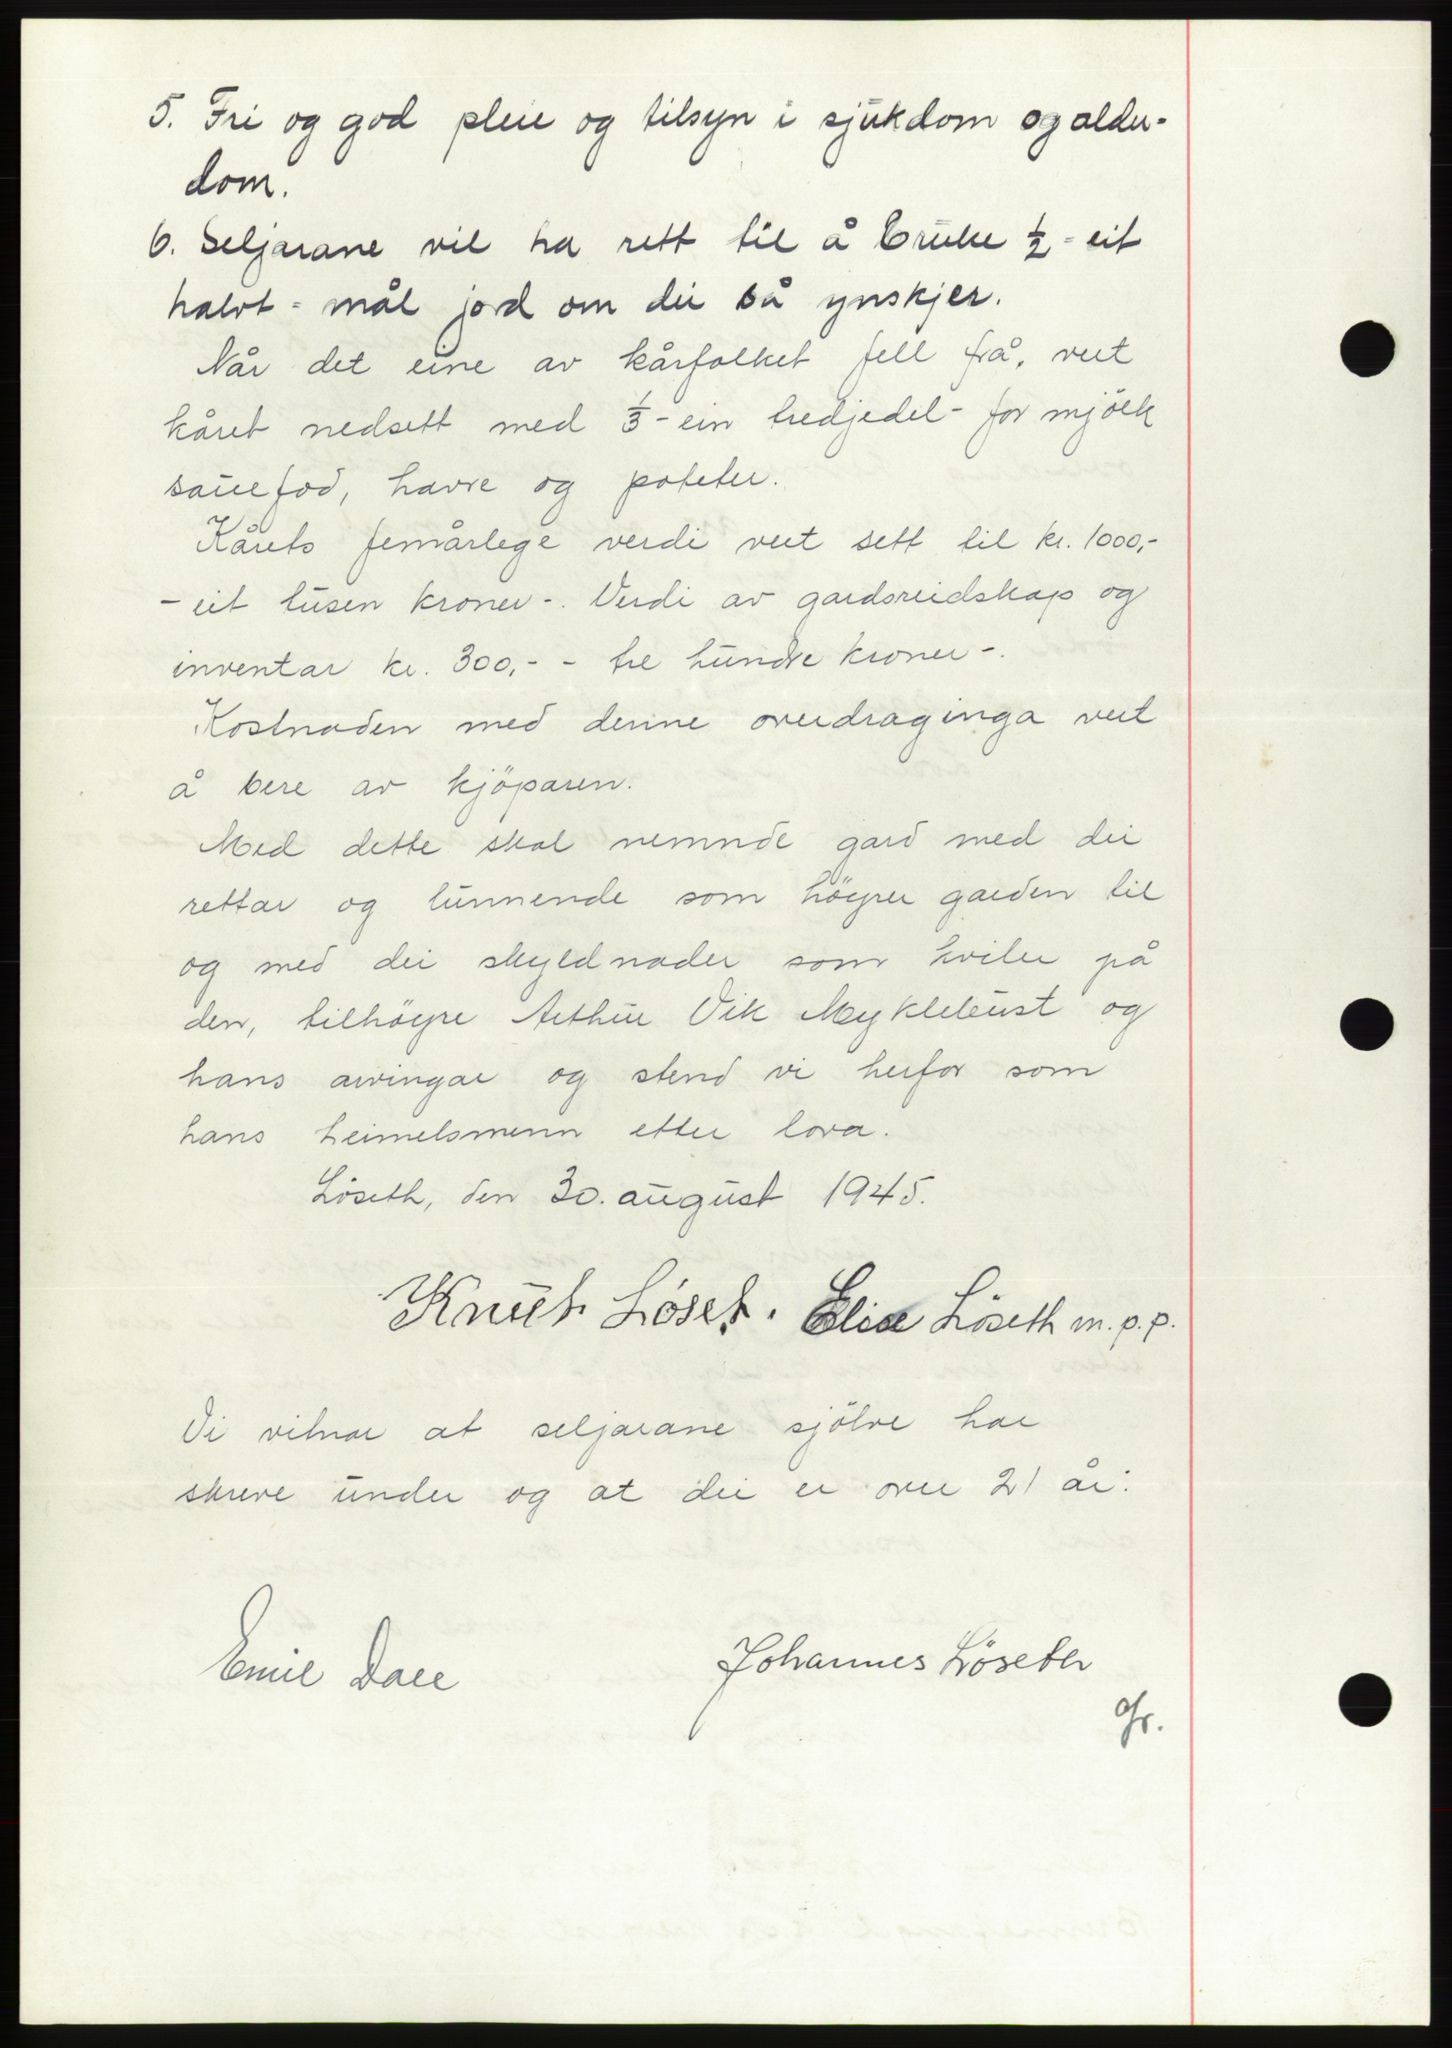 5. Fri og god pleie og tilsyn i sjukdom og alder-
dom.
6. Seljarane vil ha rett til å bruke ½ - eit
halvt - mål jord om dei så ynskjer.
Når det eine av kårfolket fell frå, vert
kåret nedsett med ⅓ - ein tredjedel - for mjölk
sauefod, havre og poteter.
Kårets femårlege verdi vert sett til kr. 1000,-
- eit tusen kroner -. Verdi av gardsreidskap og
inventar kr. 300,- - tre hundre kroner -.
Kostnaden med denne overdraginga vert
å bere av kjöparen.
Med dette skal nemnde gard med dei
rettar og lunnende som höyrer garden til
og med dei skyldnader som kviler på
den, tilhöyre Arthur Vik Myklebust og
hans arvingar og stend vi herfor som
hans heimelsmenn etter lova.
Löseth, den 30. august 1945.
Knut Løset. Elise Löseth m.p.p.
Vi vitnar at seljarane sjölve har
skreve under og at dei er over 21 år:
Emil Dale Johannes Løseth
Gr.